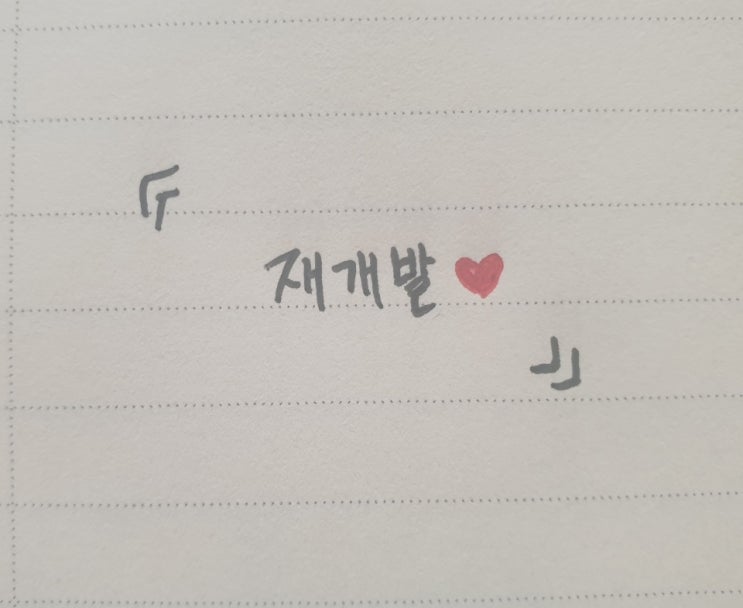 『
재개발♥
』